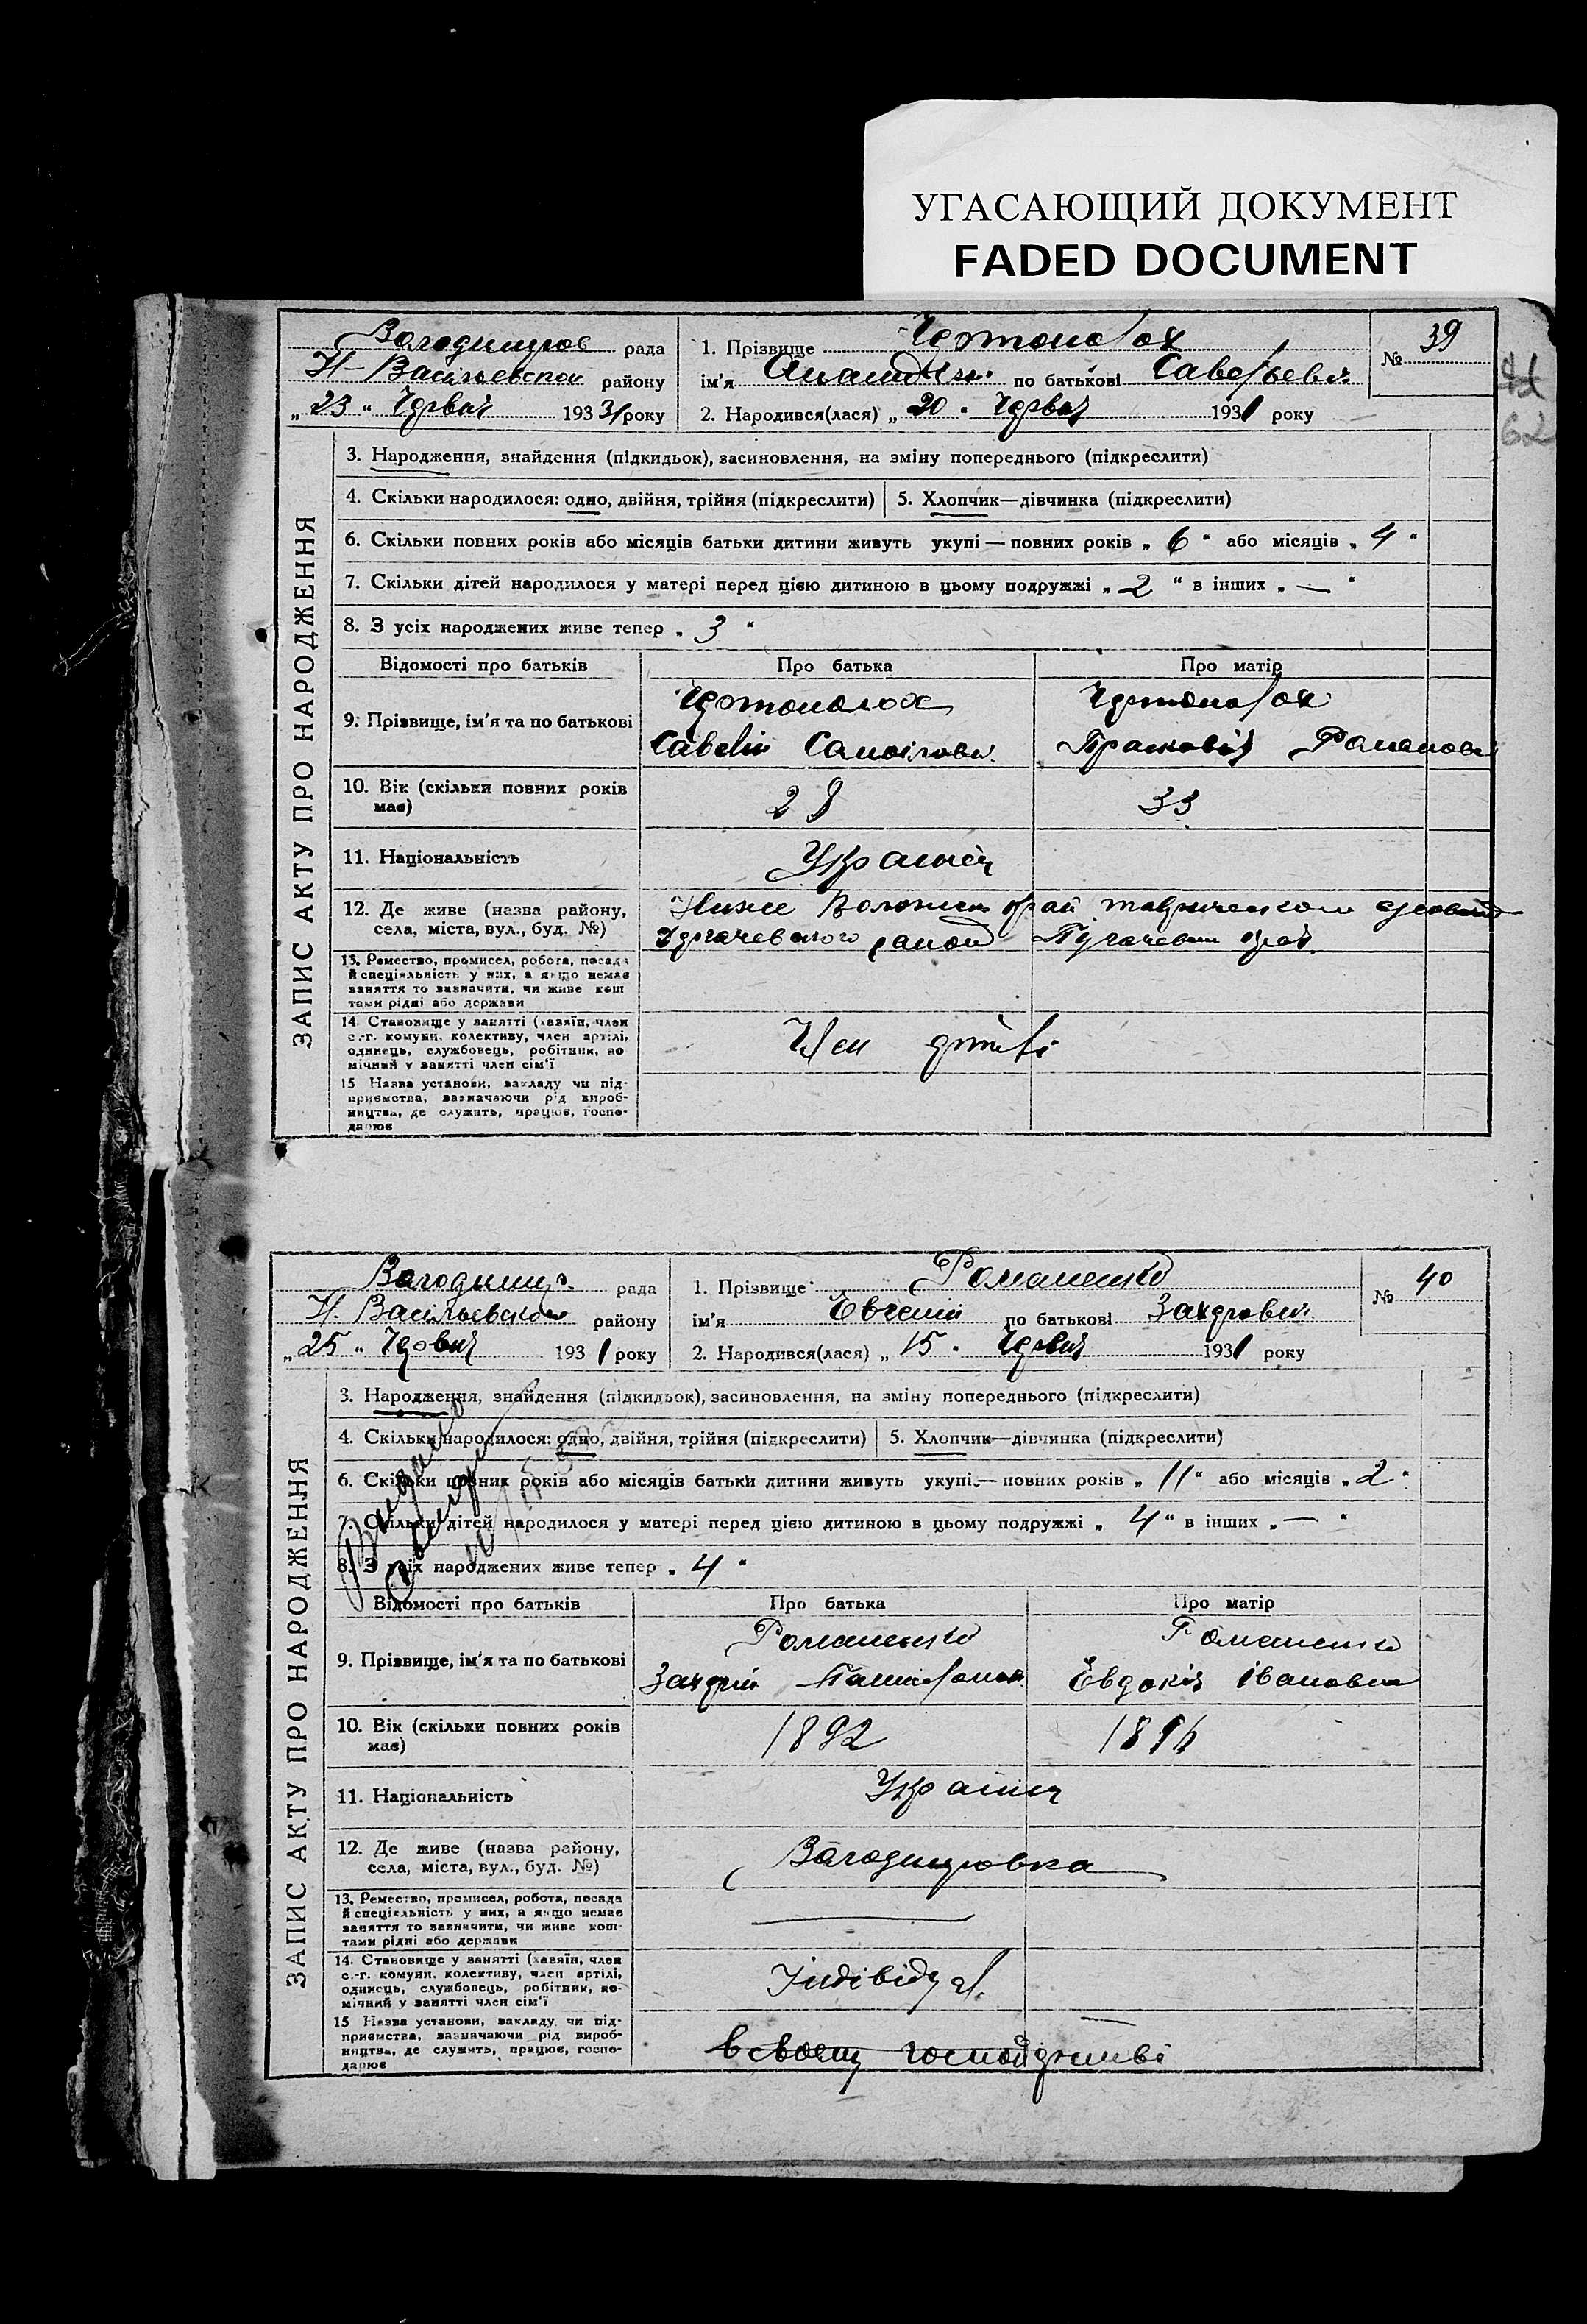 УГАСАЮЩИЙ ДОКУМЕНТ
FADED DOCUMENT
ЗАПИС АКТУ ПРО НАРОДЖЕННЯ
Володимиров рада
Н-Васильевской району
„23“ Червня 1931 року
1. Прізвище Чертополох
ім'я по батькові Савельевич
2. Народився(лася) „20“ Червня 1931 року
№ 39
62
3. Народження, знайдення (підкидьок), засиновлення, на зміну попереднього (підкреслити)
4. Скільки народилося: одно, двійня, трійня (підкреслити) 5. Хлопчик—дівчинка (підкреслити)
6. Скільки повних років або місяців батьки дитини живуть укупі—повних років „6“ або місяців „4“
7. Скільки дітей народилося у матері перед цією дитиною в цьому подружжі „2“ в інших „—“
8. З усіх народжених живе тепер „3“
Відомості про батьків Про батька Про матір
9. Прізвище, ім'я та по батькові
Чертополох Чертополох
Савелій Самойлович Прасковія Романовн
10. Вік (скільки повних років має) 28 33
11. Національність Українці
12. Де живе (назва району, села, міста, вул., буд. №)
13. Ремество, промисел, робота, посада й спеціяльність у них, а якщо немає заняття то зазначити, чи живе коштами рідні або держави
14. Становище у занятті (хазяїн, член с.-г. комуни, колективу, член артілі, одинець, службовець, робітник, помічний у занятті член сім'ї Член
15 Назва установи, закладу чи підприємства, зазначаючи рід виробництва, де служить, працює, господарює
ЗАПИС АКТУ ПРО НАРОДЖЕННЯ
Володимир. рада
Н. Васильевской району
„25“ Червня 1931 року
1. Прізвище Романенко
ім'я Евгений по батькові Захарович
2. Народився(лася) „15“ Червня 1931 року
№ 40
3. Народження, знайдення (підкидьок), засиновлення, на зміну попереднього (підкреслити)
4. Скільки народилося: одно, двійня, трійня (підкреслити) 5. Хлопчик—дівчинка (підкреслити)
6. Скільки повних років або місяців батьки дитини живуть укупі—повних років „11“ або місяців „2“
7. Скільки дітей народилося у матері перед цією дитиною в цьому подружжі „4“ в інших „—“
8. З усіх народжених живе тепер „4“
Відомості про батьків Про батька Про матір
9. Прізвище, ім'я та по батькові
Романенко Романенко
Евдокія Івановна
10. Вік (скільки повних років має) 1892
11. Національність Українці
12. Де живе (назва району, села, міста, вул., буд. №) Володимировка
13. Ремество, промисел, робота, посада й спеціяльність у них, а якщо немає заняття то зазначити, чи живе коштами рідні або держави
14. Становище у занятті (хазяїн, член с.-г. комуни, колективу, член артілі, одинець, службовець, робітник, помічний у занятті член сім'ї Індівідуал.
15 Назва установи, закладу чи підприємства, зазначаючи рід виробництва, де служить, працює, господарює в своему господарстві